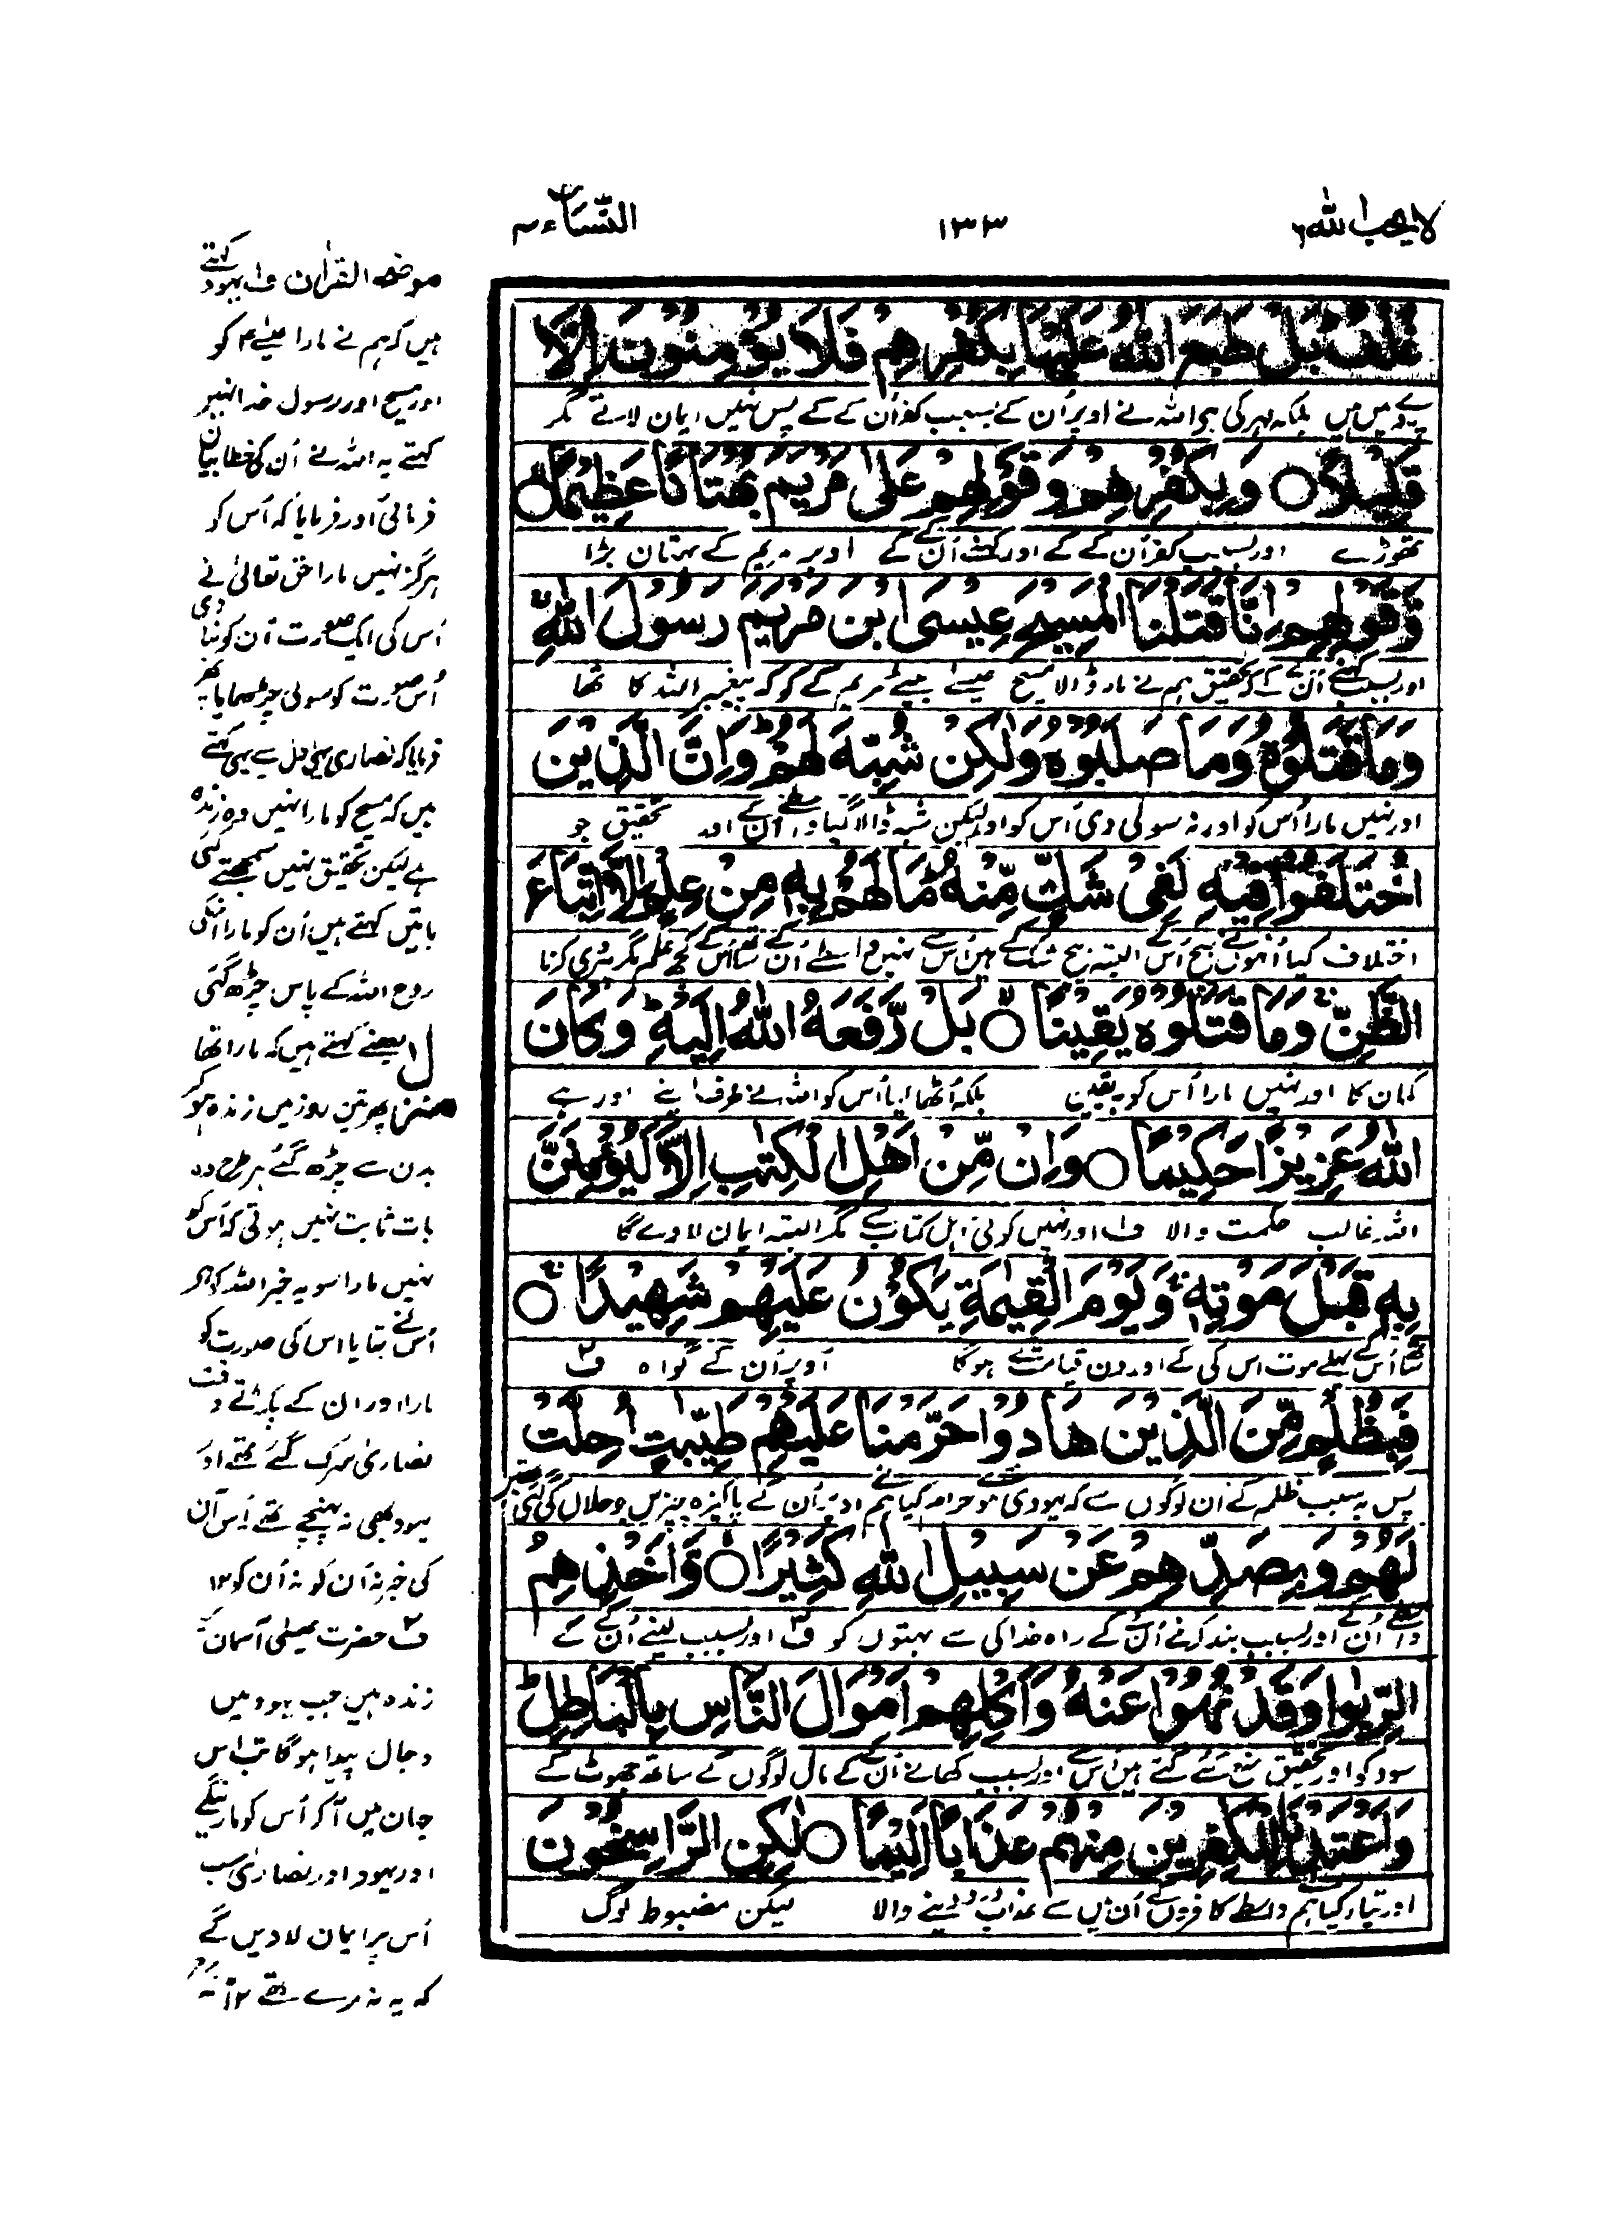 لا يحب الله ٦
١٣٣
النساء ٤
غُلْفٌ بَلْ طَبَعَ اللهُ عَلَيْهَا بِكُفْرِهِمْ فَلَا يُؤْمِنُونَ اِلَّا
میں بلکہ مہر کی ہی اللہ نے اوپر اُن کے بسبب کفر اُن کے کے پس نہیں ایمان لاتے مگر
قَلِيْلًا ○ وَّبِكُفْرِهِمْ وَقَوْلِهِمْ عَلٰى مَرْيَمَ بُهْتَانًا عَظِيْمًا ○
تھوڑے اور بسبب کفر اُن کے کے اور کہنے اُن کے کے اوپر مریم کے بہتان بڑا
وَّقَوْلِهِمْ اِنَّا قَتَلْنَا الْمَسِيْحَ عِيْسَى ابْنَ مَرْيَمَ رَسُوْلَ اللهِ
اور بسبب کہنے اُن کے کے کہ تحقیق ہم نے مار ڈالا مسیح عیسے بیٹے مریم کے کو کہ پیغمبر اللہ کا تھا
وَمَا قَتَلُوْهُ وَمَا صَلَبُوْهُ وَلٰكِنْ شُبِّهَ لَهُمْ وَاِنَّ الَّذِيْنَ
اور نہیں مارا اُس کو اور نہ سولی دی اُس کو اور لیکن شبہ ڈالا گیا واسطے اُن کے اور تحقیق جو
اخْتَلَفُوْا فِيْهِ لَفِيْ شَكٍّ مِّنْهُ مَا لَهُمْ بِهٖ مِنْ عِلْمٍ اِلَّا اتِّبَاعَ
اختلاف کیا اُنہوں نے بیچ اُس کے البتہ بیچ شک کے ہیں اُس سے نہیں واسطے اُن کے ساتھ اُس کے کچھ علم مگر پیروی کرنا
الظَّنِّ وَمَا قَتَلُوْهُ يَقِيْنًا ○ بَلْ رَّفَعَهُ اللهُ اِلَيْهِ وَكَانَ
گمان کا اور نہیں مارا اُس کو بیقین بلکہ اُٹھا لیا اُس کو اللہ نے طرف اپنے اور ہے
اللهُ عَزِيْزًا حَكِيْمًا ○ وَاِنْ مِّنْ اَهْلِ الْكِتٰبِ اِلَّا لَيُؤْمِنَنَّ
اللہ غالب حکمت والا ف۱ اور نہیں کوئی اہل کتاب سے مگر البتہ ایمان لاوے گا
بِهٖ قَبْلَ مَوْتِهٖ وَيَوْمَ الْقِيٰمَةِ يَكُوْنُ عَلَيْهِمْ شَهِيْدًا ○
ساتھ اُس کے پہلے موت اس کی کے اور دن قیامت کے ہوگا اوپر اُن کے گواہ ف۲
فَبِظُلْمٍ مِّنَ الَّذِيْنَ هَادُوْا حَرَّمْنَا عَلَيْهِمْ طَيِّبٰتٍ اُحِلَّتْ
پس بہ سبب ظلم کے ان لوگوں سے کہ یہودی ہوئے حرام کیا ہم نے اوپر اُن کے پاکیزہ چیزیں جو حلال کی گئی تھیں
لَهُمْ وَبِصَدِّهِمْ عَنْ سَبِيْلِ اللهِ كَثِيْرًا ○ وَّاَخْذِهِمُ
واسطے اُن کے اور بسبب بند کرنے اُن کے کے راہ خدا کی سے بہتوں کو ف۳ اور بسبب لینے اُن کے کے
الرِّبٰوا وَقَدْ نُهُوْا عَنْهُ وَاَكْلِهِمْ اَمْوَالَ النَّاسِ بِالْبَاطِلِ
سود کو اور تحقیق منع کئے گئے ہیں اُس سے اور بسبب کھانے اُن کے کے مال لوگوں کے ساتھ جھوٹ کے
وَاَعْتَدْنَا لِلْكٰفِرِيْنَ مِنْهُمْ عَذَابًا اَلِيْمًا ○ لٰكِنِ الرَّاسِخُوْنَ
اور تیار کیا ہم نے واسطے کافروں کے اُن میں سے عذاب درد دینے والا لیکن مضبوط لوگ
موضح القرآن ف۱ یہود کہتے
ہیں کہ ہم نے مارا عیسےٰ کو
اور مسیح اور رسول خدا نہیں
کہتے یہ اللہ نے اُن کی خطا بیان
فرمائی اور فرمایا کہ اُس کو
ہرگز نہیں مارا حق تعالیٰ نے
اُس کی ایک صورت اُن کو بنا دی
اُس صورت کو سولی چڑھایا پھر
فرمایا کہ نصاری بھی اول سے یہی کہتے
ہیں کہ مسیح کو مارا نہیں وہ زندہ
ہے لیکن تحقیق نہیں سمجھتے کئی
باتیں کہتے ہیں اُن کو مارا انکی
روح اللہ کے پاس چڑھ گئی
بعضے کہتے ہیں کہ مارا تھا
پھر تین روز میں زندہ ہو کر
بدن سے چڑھ گئے ہر طرح وہ
بات ثابت نہیں ہوتی کہ اُس کو
نہیں مارا سو یہ خبر اللہ کو ہے کہ
اُس نے بتایا اس کی صورت کو
مارا اور ان کے پکڑتے وقت
نصاریٰ سرک گئے تھے اور
یہود بھی نہ پہنچے تھے اِس آن
کی خبر نہ اُن کو نہ اُن کو ۱۲
ف۲ حضرت عیسٰی آسمان پر
زندہ ہیں جب یہود میں
دجال پیدا ہوگا تب اس
جہان میں آکر اُس کو مارینگے
اور یہود اور نصاریٰ سب
اُس پر ایمان لاویں گے
کہ یہ نہ مرے تھے ۱۲